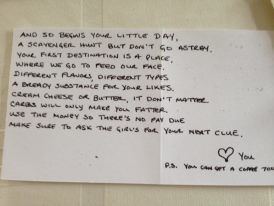 AND SO BEGINS YOUR LITTLE DAY,
A SCAVENGER HUNT BUT DON'T GO ASTRAY.
YOUR FIRST DESTINATION IS A PLACE,
WHERE WE GO TO FEED OUR FACE.
DIFFERENT FLAVORS, DIFFERENT TYPES
A BREADY SUBSTANCE FOR YOUR LIKES.
CREAM CHEESE OR BUTTER, IT DON'T MATTER
CARBS WILL ONLY MAKE YOU FATTER
USE THE MONEY SO THERE'S NO PAY DUE
MAKE SURE TO ASK THE GIRLS FOR YOUR NEXT CLUE.
♡ YOU
P.S. YOU CAN GET A COFFEE TOO